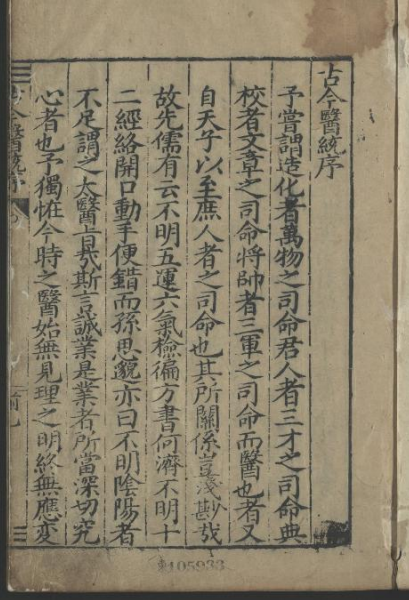 古今醫統序
予嘗謂造化者萬物之司命君人者三才之司命典
校者文章之司命將帥者三軍之司命而醫也者又
自天子以至庶人者之司命也其所關係豈淺尠哉
故先儒有云不明五運六氣檢徧方書何濟不明十
二經絡開口動手便錯而孫思邈亦曰不明陰陽者
不足謂之大醫旨哉斯言誠業是業者所當深切究
心者也予獨恠今時之醫始無見理之明終無應變
今醫統序
105933